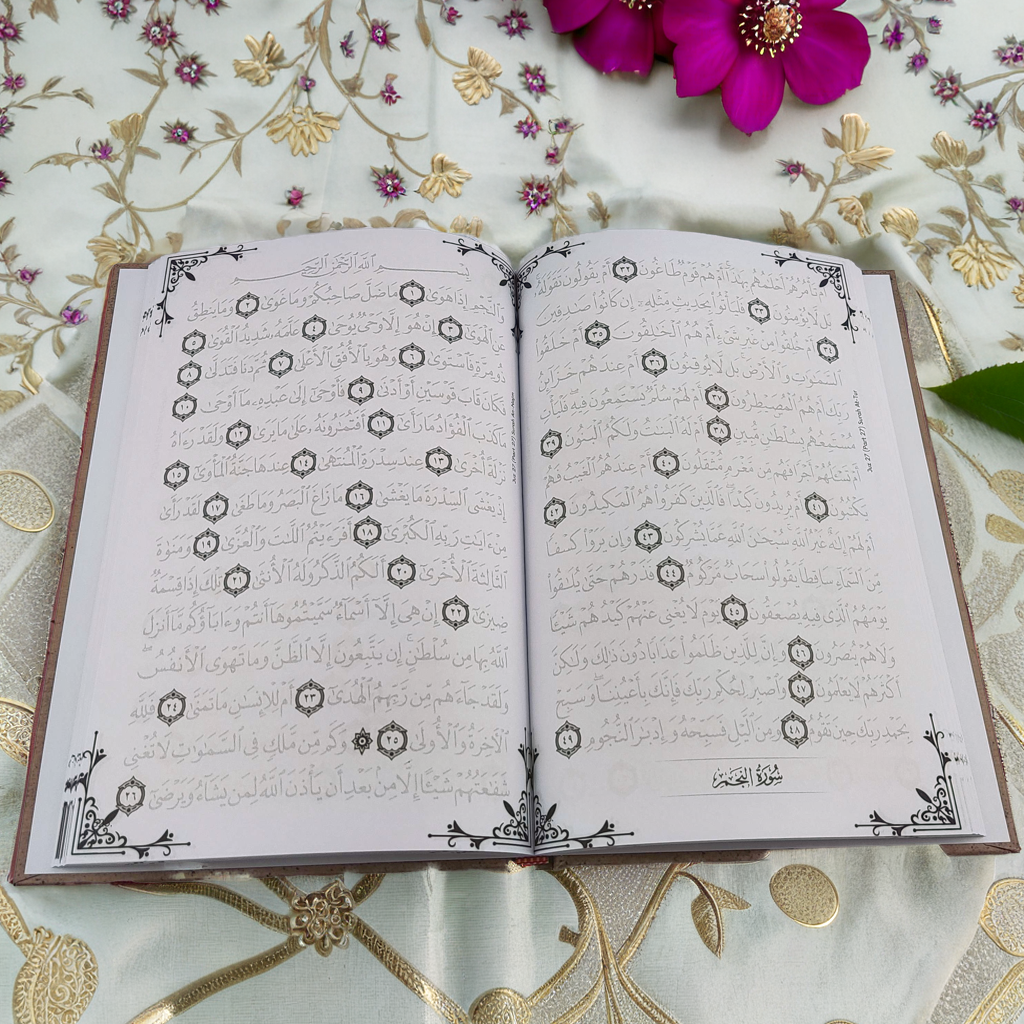 أَمۡ تَأۡمُرُهُمۡ أَحۡلَٰمُهُم بِهَٰذَآۚ أَمۡ هُمۡ قَوۡمٞ طَاغُونَ ٣٢ أَمۡ يَقُولُونَ تَقَوَّلَهُۥۚ
بَل لَّا يُؤۡمِنُونَ ٣٣ فَلۡيَأۡتُواْ بِحَدِيثٖ مِّثۡلِهِۦٓ إِن كَانُواْ صَٰدِقِينَ
٣٤ أَمۡ خُلِقُواْ مِنۡ غَيۡرِ شَيۡءٍ أَمۡ هُمُ ٱلۡخَٰلِقُونَ ٣٥ أَمۡ خَلَقُواْ
ٱلسَّمَٰوَٰتِ وَٱلۡأَرۡضَۚ بَل لَّا يُوقِنُونَ ٣٦ أَمۡ عِندَهُمۡ خَزَآئِنُ
رَبِّكَ أَمۡ هُمُ ٱلۡمُصَۜيۡطِرُونَ ٣٧ أَمۡ لَهُمۡ سُلَّمٞ يَسۡتَمِعُونَ فِيهِۖ فَلۡيَأۡتِ
مُسۡتَمِعُهُم بِسُلۡطَٰنٖ مُّبِينٍ ٣٨ أَمۡ لَهُ ٱلۡبَنَٰتُ وَلَكُمُ ٱلۡبَنُونَ ٣٩
أَمۡ تَسۡـَٔلُهُمۡ أَجۡرٗا فَهُم مِّن مَّغۡرَمٖ مُّثۡقَلُونَ ٤٠ أَمۡ عِندَهُمُ ٱلۡغَيۡبُ فَهُمۡ
يَكۡتُبُونَ ٤١ أَمۡ يُرِيدُونَ كَيۡدٗاۖ فَٱلَّذِينَ كَفَرُواْ هُمُ ٱلۡمَكِيدُونَ ٤٢
أَمۡ لَهُمۡ إِلَٰهٌ غَيۡرُ ٱللَّهِۚ سُبۡحَٰنَ ٱللَّهِ عَمَّا يُشۡرِكُونَ ٤٣ وَإِن يَرَوۡاْ كِسۡفٗا
مِّنَ ٱلسَّمَآءِ سَاقِطٗا يَقُولُواْ سَحَابٞ مَّرۡكُومٞ ٤٤ فَذَرۡهُمۡ حَتَّىٰ يُلَٰقُواْ
يَوۡمَهُمُ ٱلَّذِي فِيهِ يُصۡعَقُونَ ٤٥ يَوۡمَ لَا يُغۡنِي عَنۡهُمۡ كَيۡدُهُمۡ شَيۡـٔٗا
وَلَا هُمۡ يُنصَرُونَ ٤٦ وَإِنَّ لِلَّذِينَ ظَلَمُواْ عَذَابٗا دُونَ ذَٰلِكَ وَلَٰكِنَّ
أَكۡثَرَهُمۡ لَا يَعۡلَمُونَ ٤٧ وَٱصۡبِرۡ لِحُكۡمِ رَبِّكَ فَإِنَّكَ بِأَعۡيُنِنَاۖ وَسَبِّحۡ
بِحَمۡدِ رَبِّكَ حِينَ تَقُومُ ٤٨ وَمِنَ ٱلَّيۡلِ فَسَبِّحۡهُ وَإِدۡبَٰرَ ٱلنُّجُومِ ٤٩
سُورَةُ النَّجْمِ
Juz 27 (Part 27) Surah At-Tur
بِسۡمِ ٱللَّهِ ٱلرَّحۡمَٰنِ ٱلرَّحِيمِ
وَٱلنَّجۡمِ إِذَا هَوَىٰ ١ مَا ضَلَّ صَاحِبُكُمۡ وَمَا غَوَىٰ ٢ وَمَا يَنطِقُ
عَنِ ٱلۡهَوَىٰٓ ٣ إِنۡ هُوَ إِلَّا وَحۡيٞ يُوحَىٰ ٤ عَلَّمَهُۥ شَدِيدُ ٱلۡقُوَىٰ ٥
ذُو مِرَّةٖ فَٱسۡتَوَىٰ ٦ وَهُوَ بِٱلۡأُفُقِ ٱلۡأَعۡلَىٰ ٧ ثُمَّ دَنَا فَتَدَلَّىٰ ٨
فَكَانَ قَابَ قَوۡسَيۡنِ أَوۡ أَدۡنَىٰ ٩ فَأَوۡحَىٰٓ إِلَىٰ عَبۡدِهِۦ مَآ أَوۡحَىٰ ١٠
مَا كَذَبَ ٱلۡفُؤَادُ مَا رَأَىٰٓ ١١ أَفَتُمَٰرُونَهُۥ عَلَىٰ مَا يَرَىٰ ١٢ وَلَقَدۡ رَءَاهُ
نَزۡلَةً أُخۡرَىٰ ١٣ عِندَ سِدۡرَةِ ٱلۡمُنتَهَىٰ ١٤ عِندَهَا جَنَّةُ ٱلۡمَأۡوَىٰٓ ١٥
إِذۡ يَغۡشَى ٱلسِّدۡرَةَ مَا يَغۡشَىٰ ١٦ مَا زَاغَ ٱلۡبَصَرُ وَمَا طَغَىٰ ١٧ لَقَدۡ رَأَىٰ
مِنۡ ءَايَٰتِ رَبِّهِ ٱلۡكُبۡرَىٰٓ ١٨ أَفَرَءَيۡتُمُ ٱللَّٰتَ وَٱلۡعُزَّىٰ ١٩ وَمَنَوٰةَ
ٱلثَّالِثَةَ ٱلۡأُخۡرَىٰٓ ٢٠ أَلَكُمُ ٱلذَّكَرُ وَلَهُ ٱلۡأُنثَىٰ ٢١ تِلۡكَ إِذٗا قِسۡمَةٞ
ضِيزَىٰٓ ٢٢ إِنۡ هِيَ إِلَّآ أَسۡمَآءٞ سَمَّيۡتُمُوهَآ أَنتُمۡ وَءَابَآؤُكُم مَّآ أَنزَلَ
ٱللَّهُ بِهَا مِن سُلۡطَٰنٍۚ إِن يَتَّبِعُونَ إِلَّا ٱلظَّنَّ وَمَا تَهۡوَى ٱلۡأَنفُسُۖ
وَلَقَدۡ جَآءَهُم مِّن رَّبِّهِمُ ٱلۡهُدَىٰٓ ٢٣ أَمۡ لِلۡإِنسَٰنِ مَا تَمَنَّىٰ ٢٤ فَلِلَّهِ
ٱلۡأٓخِرَةُ وَٱلۡأُولَىٰ ٢٥ ۞ وَكَم مِّن مَّلَكٖ فِي ٱلسَّمَٰوَٰتِ لَا تُغۡنِي
شَفَٰعَتُهُمۡ شَيۡـًٔا إِلَّا مِنۢ بَعۡدِ أَن يَأۡذَنَ ٱللَّهُ لِمَن يَشَآءُ وَيَرۡضَىٰٓ ٢٦
Juz 27 (Part 27) Surah An-Najm